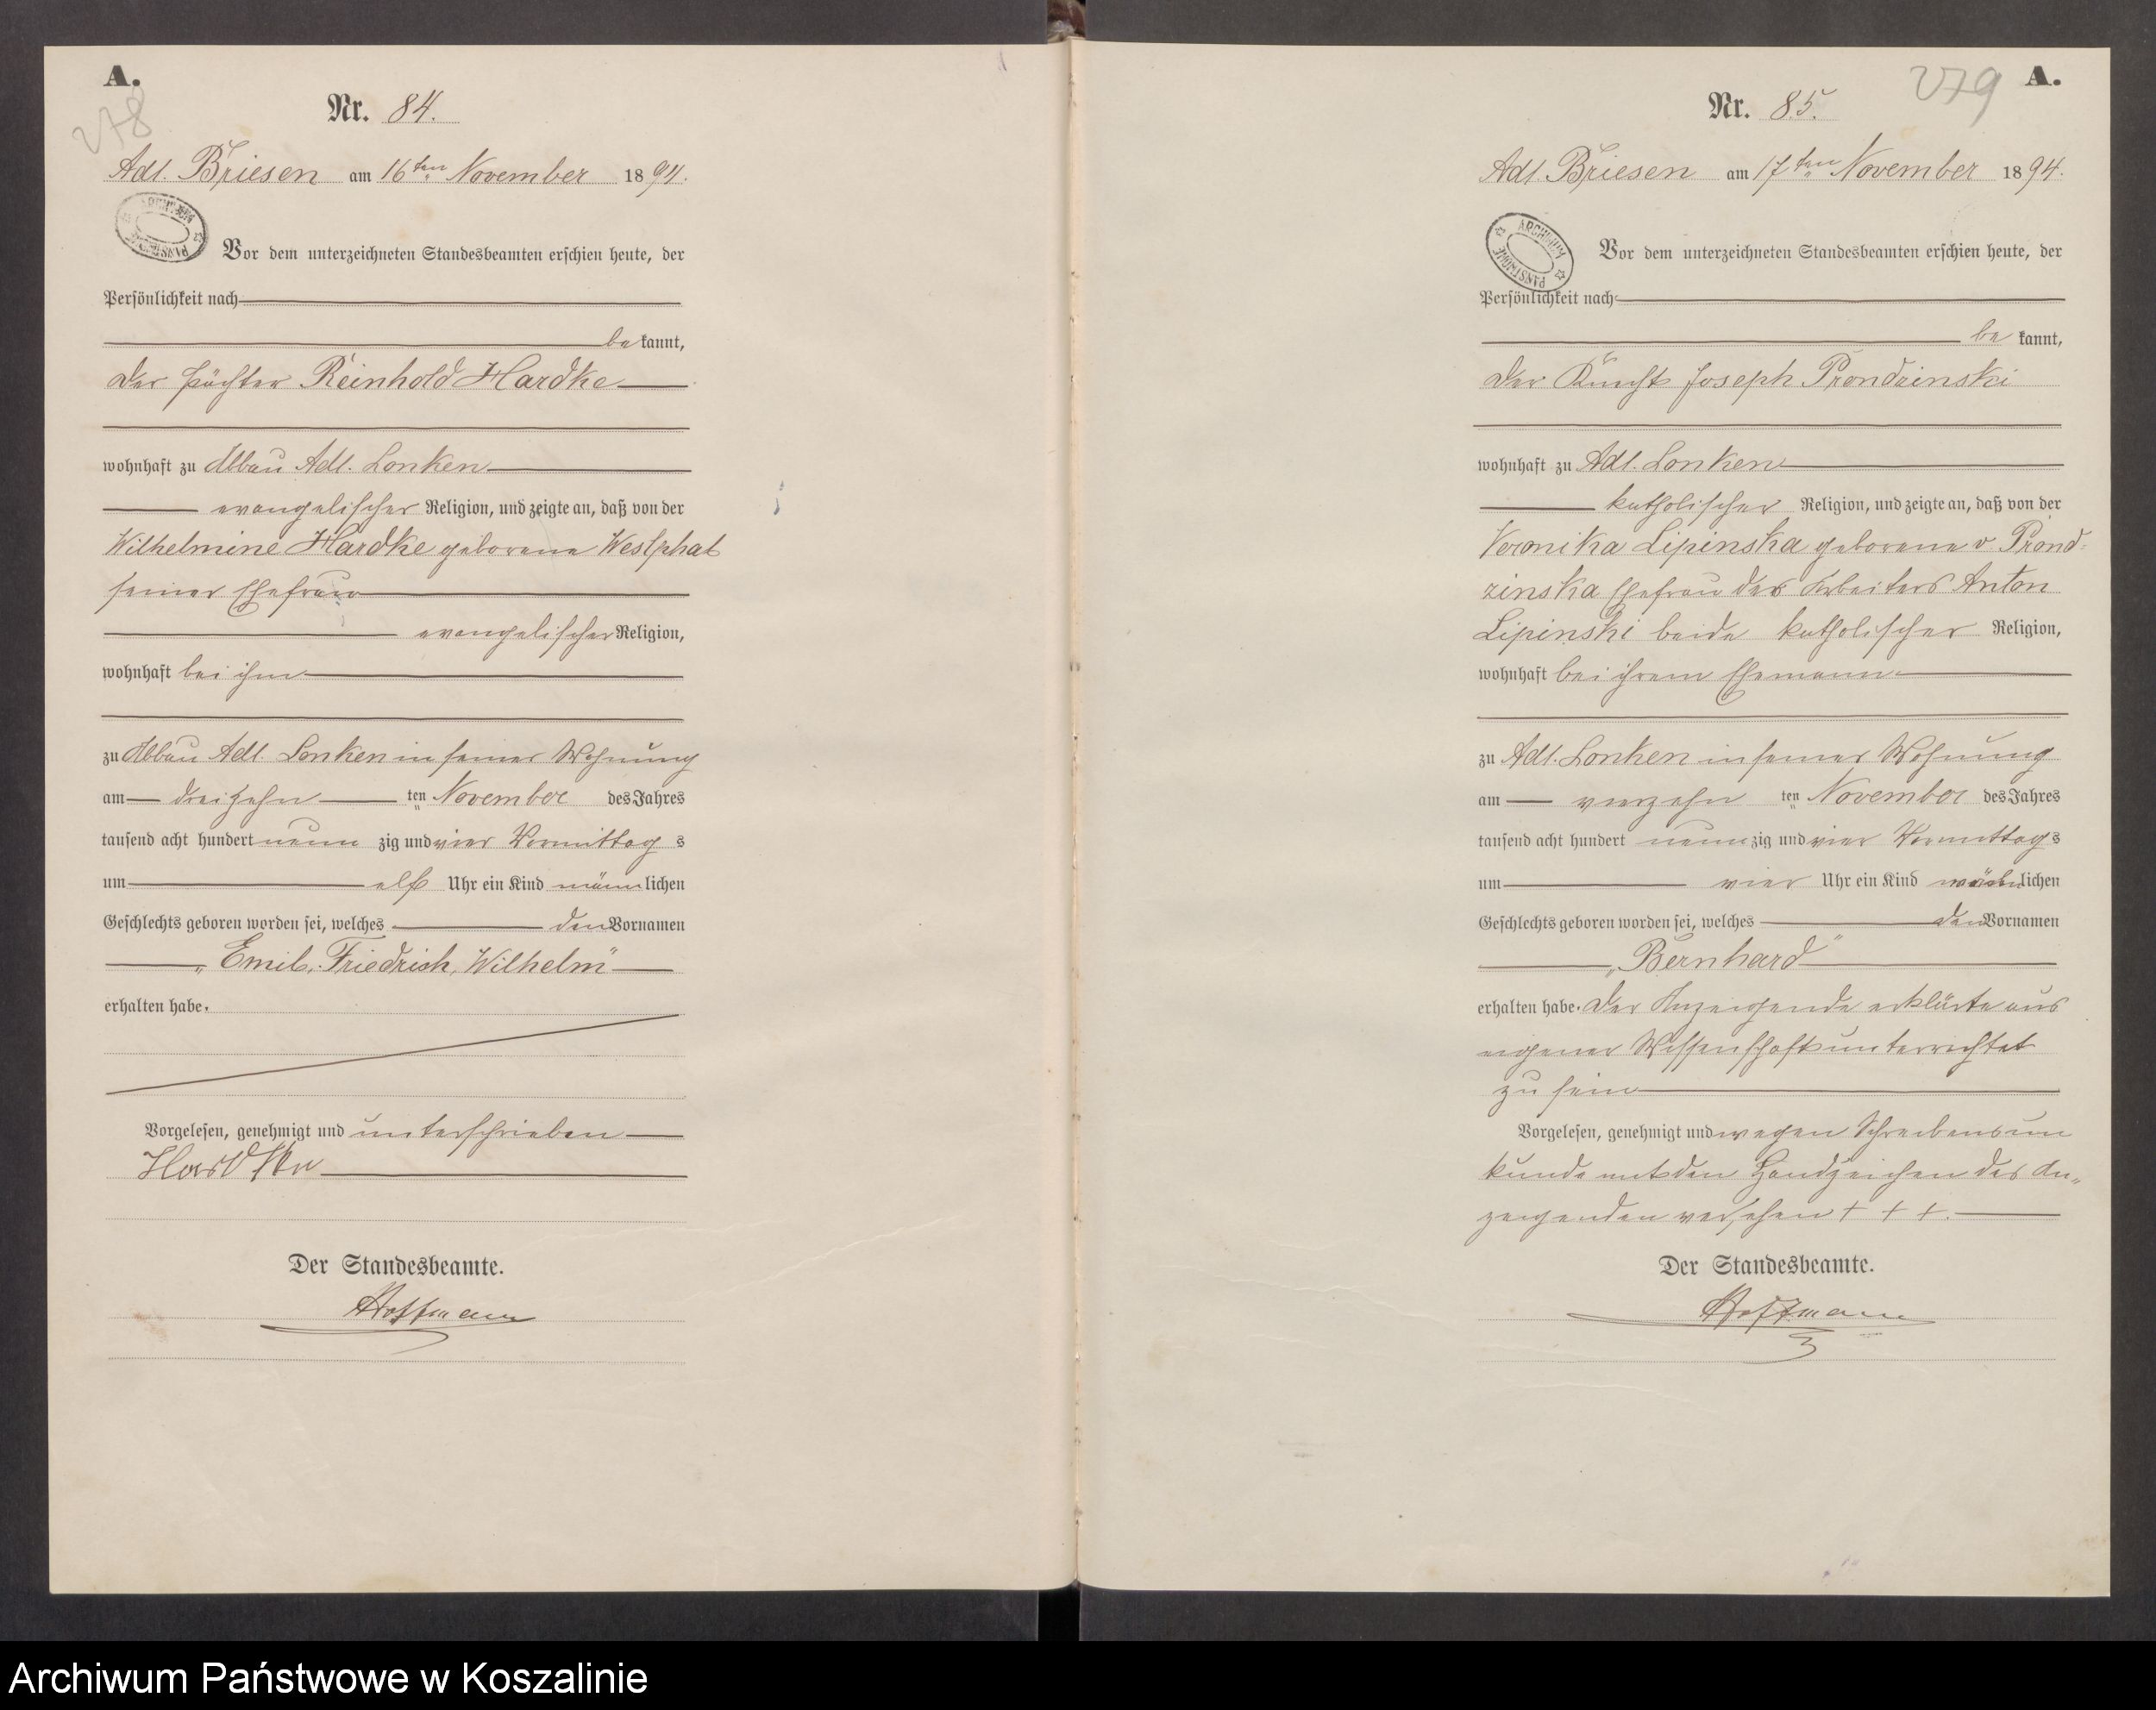 A.
278
Nr. 84.
Adl. Briesen am 16ten November 1894.
ARCHIWUM PAŃSTWOWE
Vor dem unterzeichneten Standesbeamten erschien heute, der
Persönlichkeit nach
be kannt,
der Pächter Reinhold Hardke
wohnhaft zu Abbau Adl. Lonken
evangelischer Religion, und zeigte an, daß von der
Wilhelmine Hardke geborene Westphal
seiner Ehefrau
evangelischer Religion,
wohnhaft bei ihm
zu Abbau Adl. Lonken in seiner Wohnung
am dreizehn ten November des Jahres
tausend acht hundert neun zig und vier Vormittag s
um elf Uhr ein Kind männlichen
Geschlechts geboren worden sei, welches den Vornamen
„Emil, Friedrich, Wilhelm"
erhalten habe.
Vorgelesen, genehmigt und unterschrieben
Der Standesbeamte.
Hoffmann
279
A.
Nr. 85.
Adl. Briesen am 17ten November 1894.
ARCHIWUM PAŃSTWOWE
Vor dem unterzeichneten Standesbeamten erschien heute, der
Persönlichkeit nach
be kannt,
der Knecht Joseph Prondzinski
wohnhaft zu Adl. Lonken
katholischer Religion, und zeigte an, daß von der
Veronika Lipinska geborene v Prond-
zinska Ehefrau des Arbeiters Anton
Lipinski beide katholischer Religion,
wohnhaft bei ihrem Ehemann
zu Adl. Lonken in seiner Wohnung
am vierzehn ten November des Jahres
tausend acht hundert neun zig und vier Vormittag s
um vier Uhr ein Kind männlichen
Geschlechts geboren worden sei, welches den Vornamen
„Bernhard"
erhalten habe. Der Anzeigende erklärte aus
eigener Wissenschaft unterrichtet
zu sein
Vorgelesen, genehmigt und wegen Schreibensun
kunde mit den Handzeichen des An„
zeigenden versehen + + +.
Der Standesbeamte.
Hoffmann
Archiwum Państwowe w Koszalinie